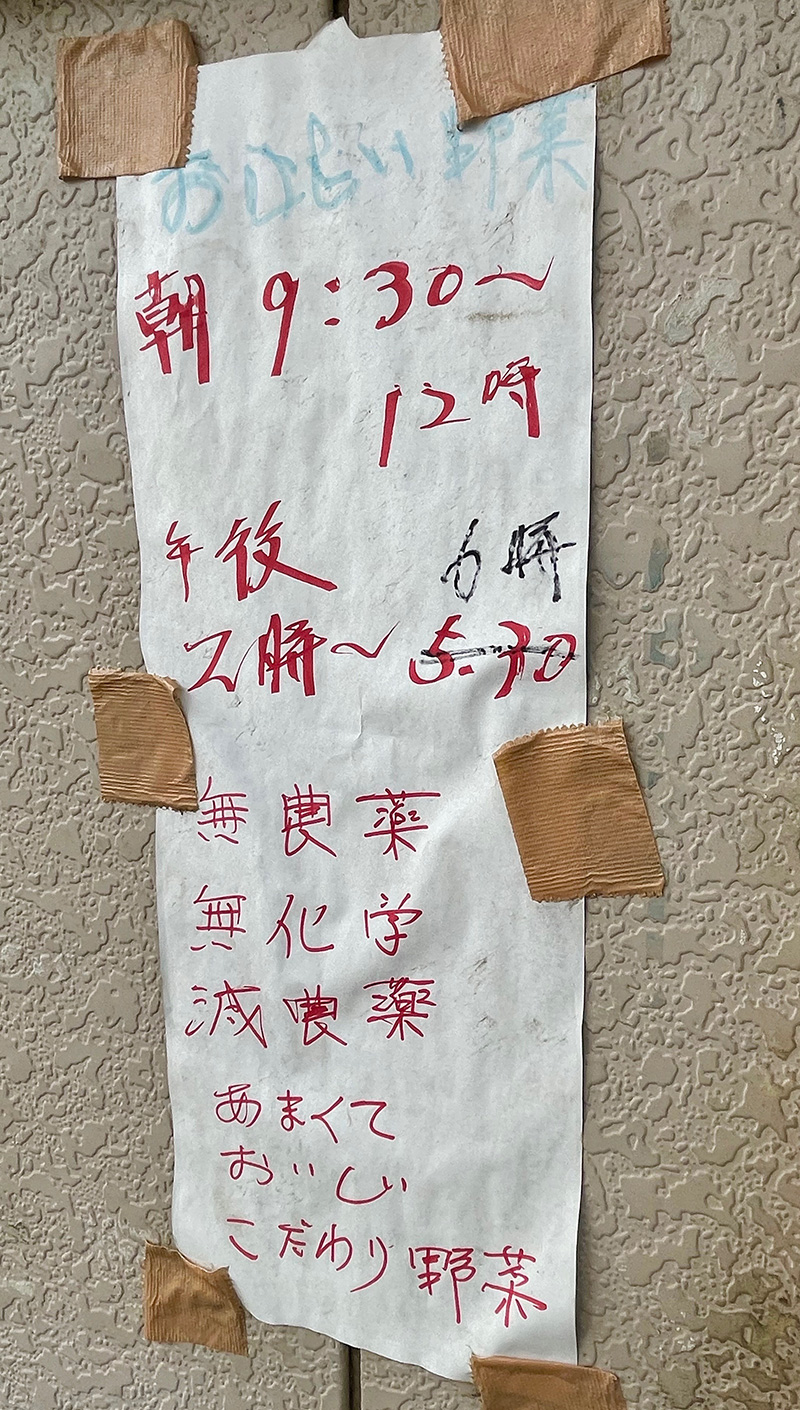 野菜
朝 9:30〜
12時
午後 6時
2時〜 5:30
無農薬
無化学
減農薬
あまくて
おいしい
こだわり野菜